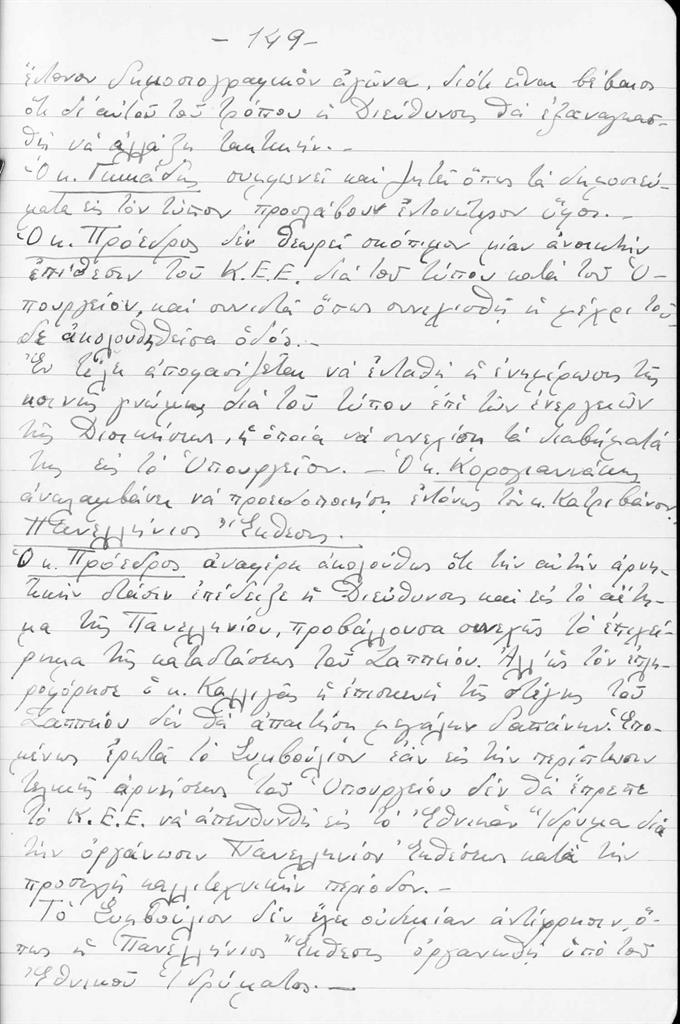 - 149 -
ἔντονον δημοσιογραφικὸν ἀγῶνα, διότι εἶναι βέβαιος
ὅτι δι' αὐτοῦ τοῦ τρόπου ἡ Διεύθυνσις θὰ ἐξαναγκασ-
θῇ νὰ ἀλλάξῃ τακτικήν.-
Ὁ κ. συμφωνεῖ καὶ ζητεῖ ὅπως τὰ δημοσιεύ-
ματα εἰς τὸν τύπον προσλάβουν ἐντονώτερον ὕφος.-
Ὁ κ. Πρόεδρος δὲν θεωρεῖ σκόπιμον μίαν ἀνοικτὴν
ἐπίθεσιν τοῦ Κ.Ε.Ε. διὰ τοῦ τύπου κατὰ τοῦ Ὑ-
πουργείου, καὶ συνιστᾷ ὅπως συνεχισθῇ ἡ μέχρι τοῦ-
δε ἀκολουθηθεῖσα ὁδός.-
Ἐν τέλει ἀποφασίζεται νὰ ἐνταθῇ ἡ ἐνημέρωσις τῆς
κοινῆς γνώμης διὰ τοῦ τύπου ἐπὶ τῶν ἐνεργειῶν
τῆς Διοικήσεως, ἡ ὁποία νὰ συνεχίσῃ τὰ διαβήματά
της εἰς τὸ Ὑπουργεῖον. - Ὁ κ. Καρογιαννάκης
ἀναλαμβάνει νὰ προειδοποιήσῃ ἐντόνως τὸν κ. Κατριβάνον.
Πανελλήνιος Ἔκθεσις.
Ὁ κ. Πρόεδρος ἀναφέρει ἀκολούθως ὅτι τὴν αὐτὴν ἀρνη-
τικὴν στάσιν ἐπέδειξε ἡ Διεύθυνσις καὶ εἰς τὸ αἴτη-
μα τῆς Πανελληνίου, προβάλλουσα συνεχῶς τὸ ἐπιχεί-
ρημα τῆς καταστάσεως τοῦ Ζαππείου. Ἀλλ' ὡς τὸν ἐπλη-
ροφόρησε ὁ κ. Καλλιγᾶς ἡ ἐπισκευὴ τῆς στέγης τοῦ
Ζαππείου δὲν θὰ ἀπαιτήσῃ μεγάλην δαπάνην. Ἑπο-
μένως ἐρωτᾷ τὸ Συμβούλιον ἐὰν εἰς τὴν περίπτωσιν
τελικῆς ἀρνήσεως τοῦ Ὑπουργείου δὲν θὰ ἔπρεπε
τὸ Κ.Ε.Ε. νὰ ἀπευθυνθῇ εἰς τὸ Ἐθνικὸν Ἵδρυμα διὰ
τὴν ὀργάνωσιν Πανελληνίου Ἐκθέσεως κατὰ τὴν
προσεχῆ καλλιτεχνικὴν περίοδον.-
Τὸ Συμβούλιον δὲν ἔχει οὐδεμίαν ἀντίρρησιν, ὅ-
πως ἡ Πανελλήνιος Ἔκθεσις ὀργανωθῇ ὑπὸ τοῦ
Ἐθνικοῦ Ἱδρύματος.-